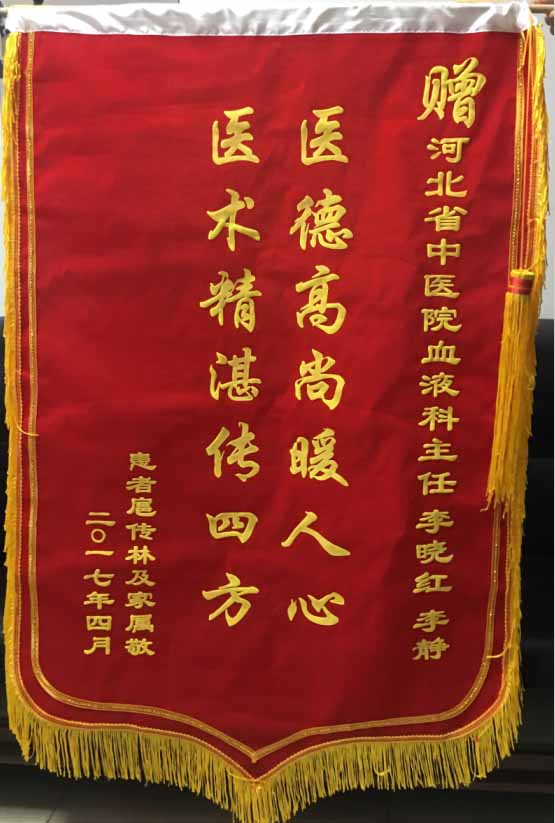 赠河北省中医院血液科主任李晓红 李静
医德高尚暖人心
医术精湛传四方
患者扈传林及家属敬
二〇一七年四月